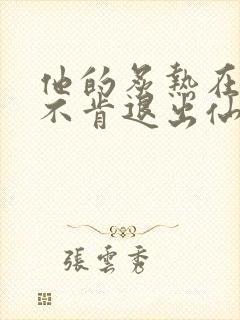 他的炙熱在
不肯退出仙
張雲秀